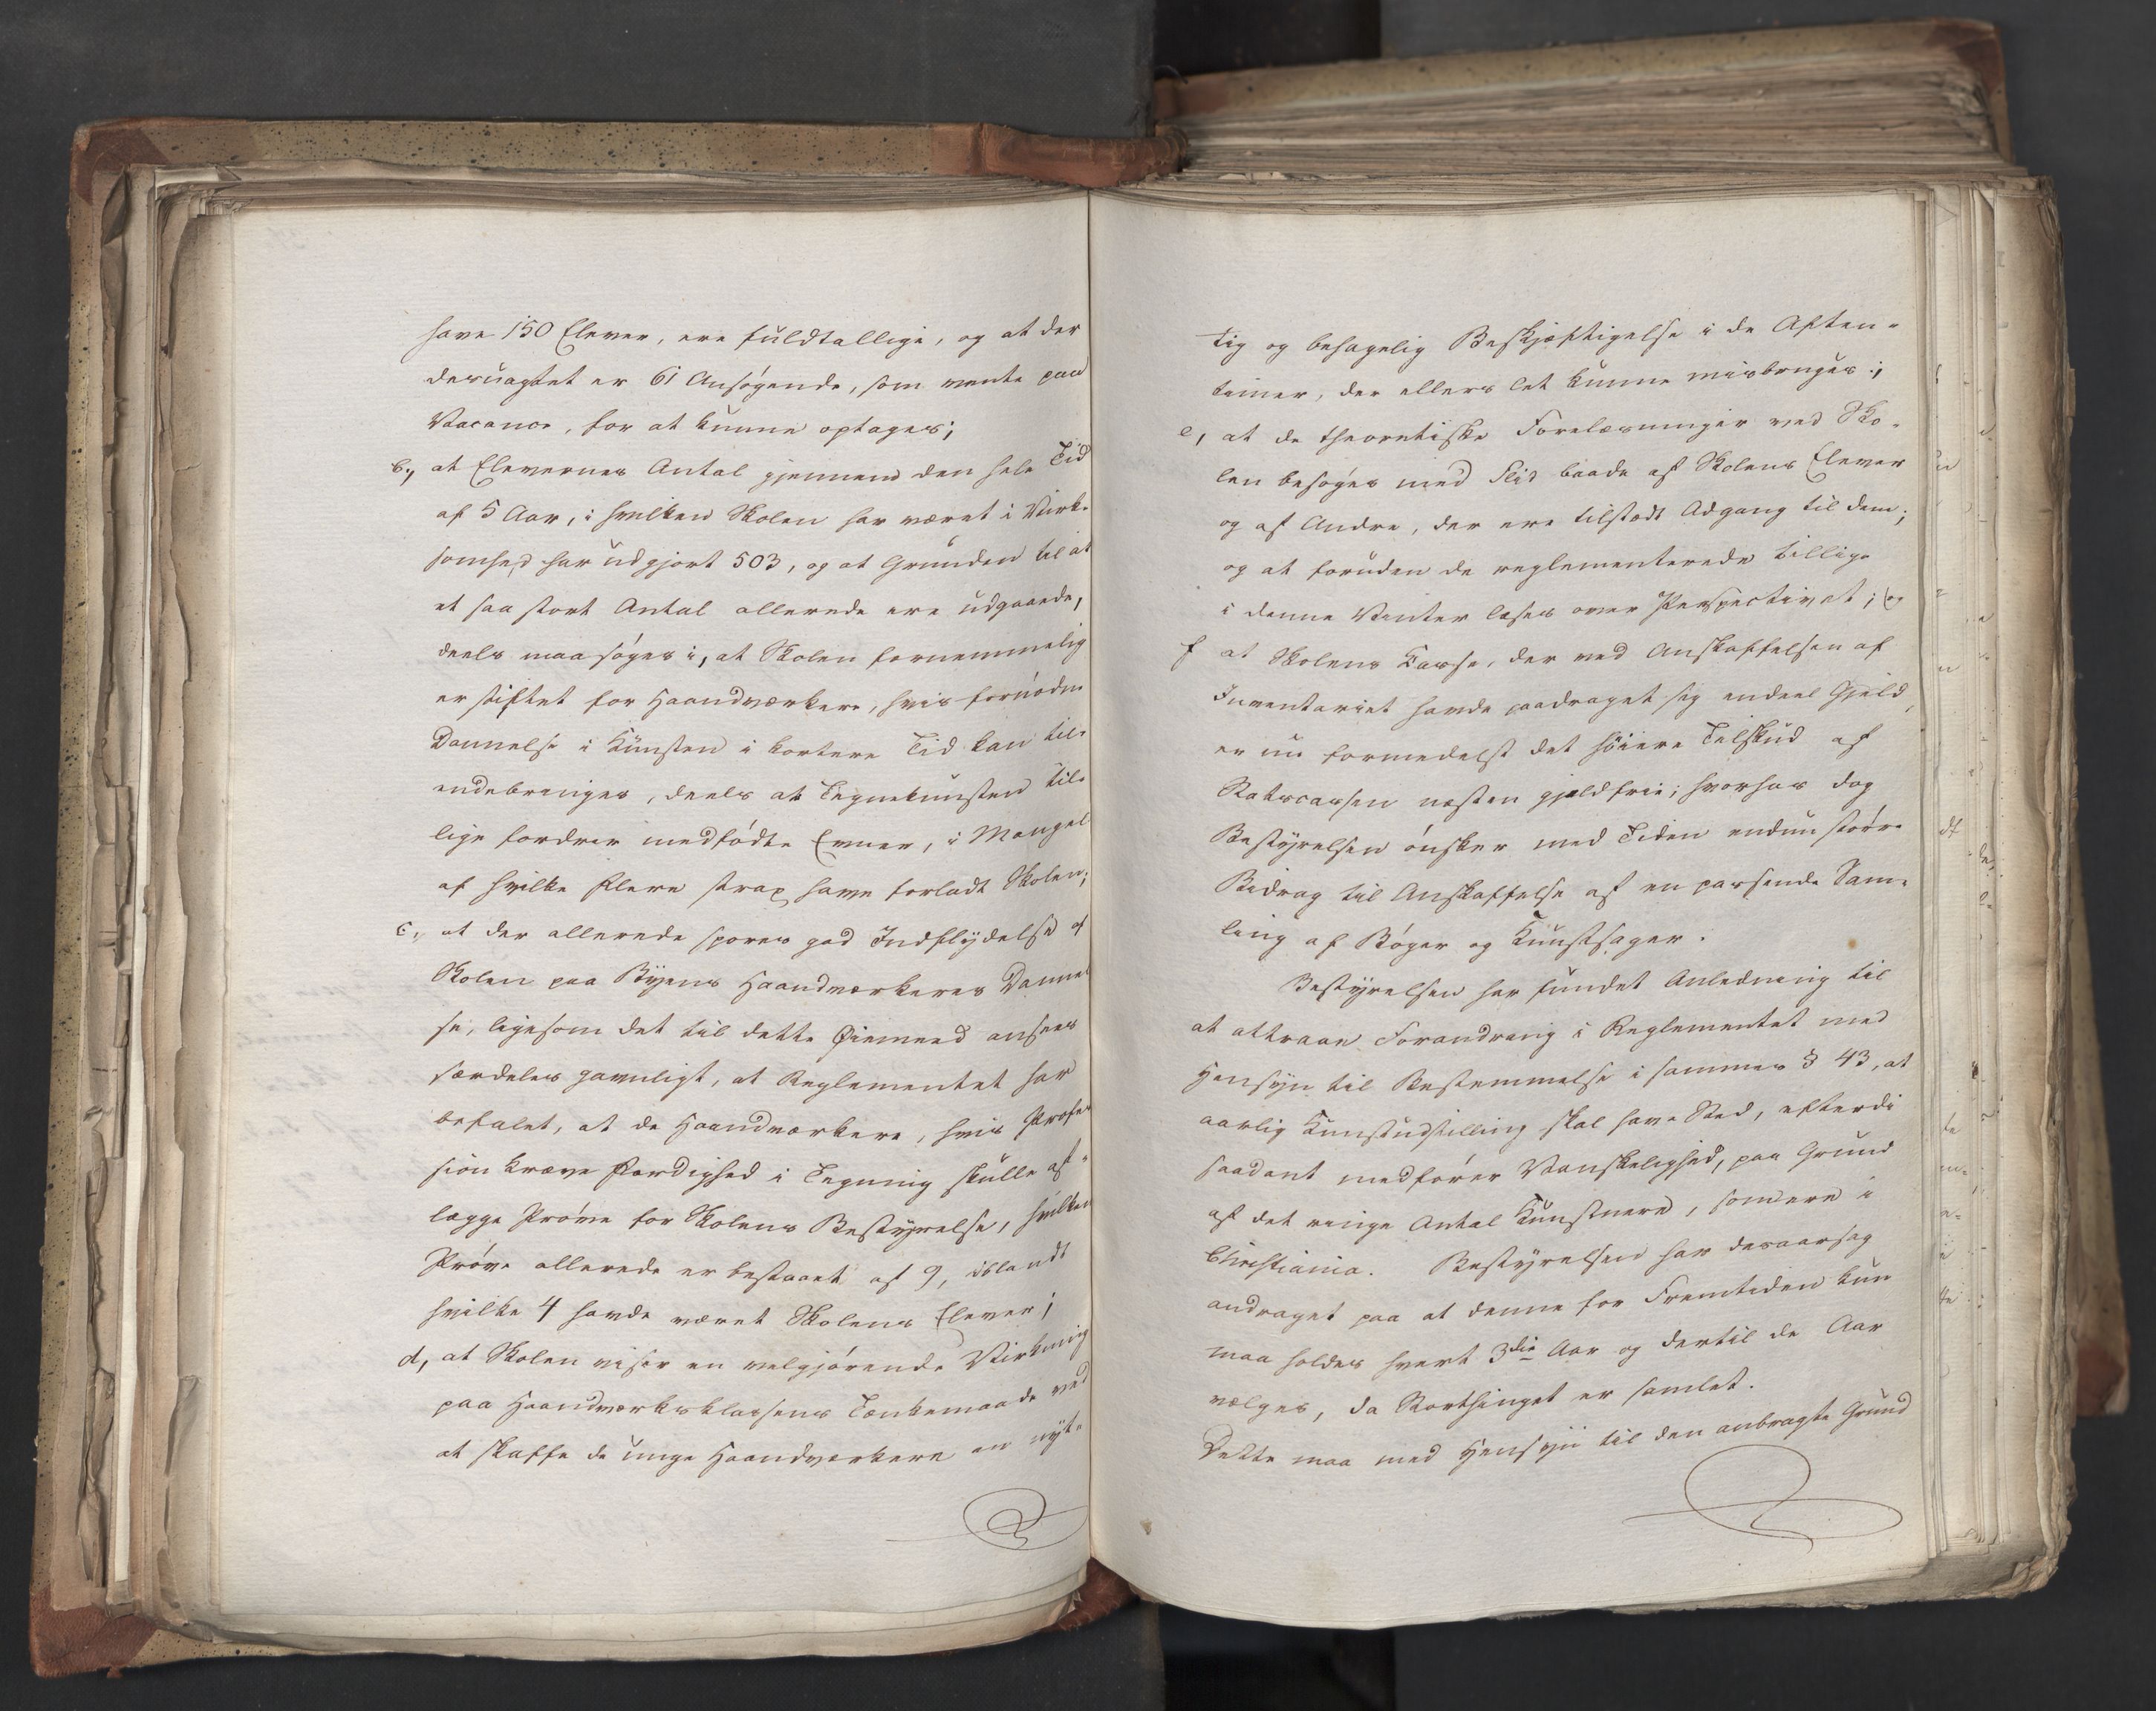 have 150 Elever, ere fuldtallige, og at der
desuagtet er 61 Ansøgende, som vente paa
Vacance, for at kunne optages;
b., at Elevernes Antal gjennem den hele Tid
af 5 Aar, i hvilken Skolen har været i Virk-
somhed har udgjort 503, og at Grunden til at
et saa stort Antal allerede ere udgaaede,
deels maa søges i, at Skolen fornemmelig
er stiftet for Haandværkere, hvis fornødne
Dannelse i Kunsten i kortere Tid kan til-
endebringes, deels at Tegnekunsten til-
lige fordrer medfødte Evner, i Mangel
af hvilke flere strax have forladt Skolen;
c., at der allerede spores god Indflydelse af
Skolen paa Byens Haandværkeres Dannel
se, ligesom det til dette Øiemeed ansees
særdeles gavnligt, at Reglementet har
befalet, at de Haandværkere, hvis Profes
sion kræve Færdighed i Tegning skulle af-
lægge Prøve for Skolens Bestyrelse, hvilken
Prøve allerede er bestaaet af 9, iblandt
hvilke 4 havde været Skolens Elever;
d, at Skolen viser en velgjørende Virkning
paa Haandværksklassens Tænkemaade ved
at skaffe de unge Haandværkere en nyt-
tig og behagelig Beskjæftigelse i de Aften-
timer, der ellers let kunne misbruges;
e, at de theoretiske Forelæsninger ved Sko-
len besøges med Flid baade af Skolens Elever
og af Andre, der ere tilstædt Adgang til dem;
og at foruden de reglementerede tillige
i denne Vinter læses over Perspectivet; og
f at Skolens Casse, der ved Anskaffelsen af
Inventariet havde paadraget sig endeel Gjeld,
er nu formedelst det høiere Tilskud af
Statscassen næsten gjeldfrie; hvorhos dog
Bestyrelsen ønsker med Tiden endnu større
Bidrag til Anskaffelse af en passende Sam-
ling af Bøger og Kunstsager.
Bestyrelsen har fundet Anledning til
at attraae Forandring i Reglementet med
Hensyn til Bestemmelse i sammes § 43, at
aarlig Kunstudstilling skal have Sted, efterdi
saadant medfører Vanskelighed, paa Grund
af det ringe Antal Kunstnere, som ere i
Christiania. Bestyrelsen har desaarsag
andraget paa at denne for Fremtiden kun
maa holdes hvert 3die Aar og dertil de Aar
vælges, da Storthinget er samlet.
Dette maa med Hensyn til den anbragte Grund